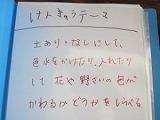 けんきゅうテーマ
土あり・なしにして、
色水をかけたり、入れたり
して 花や野さいの色が
かわるかどうかをしらべる